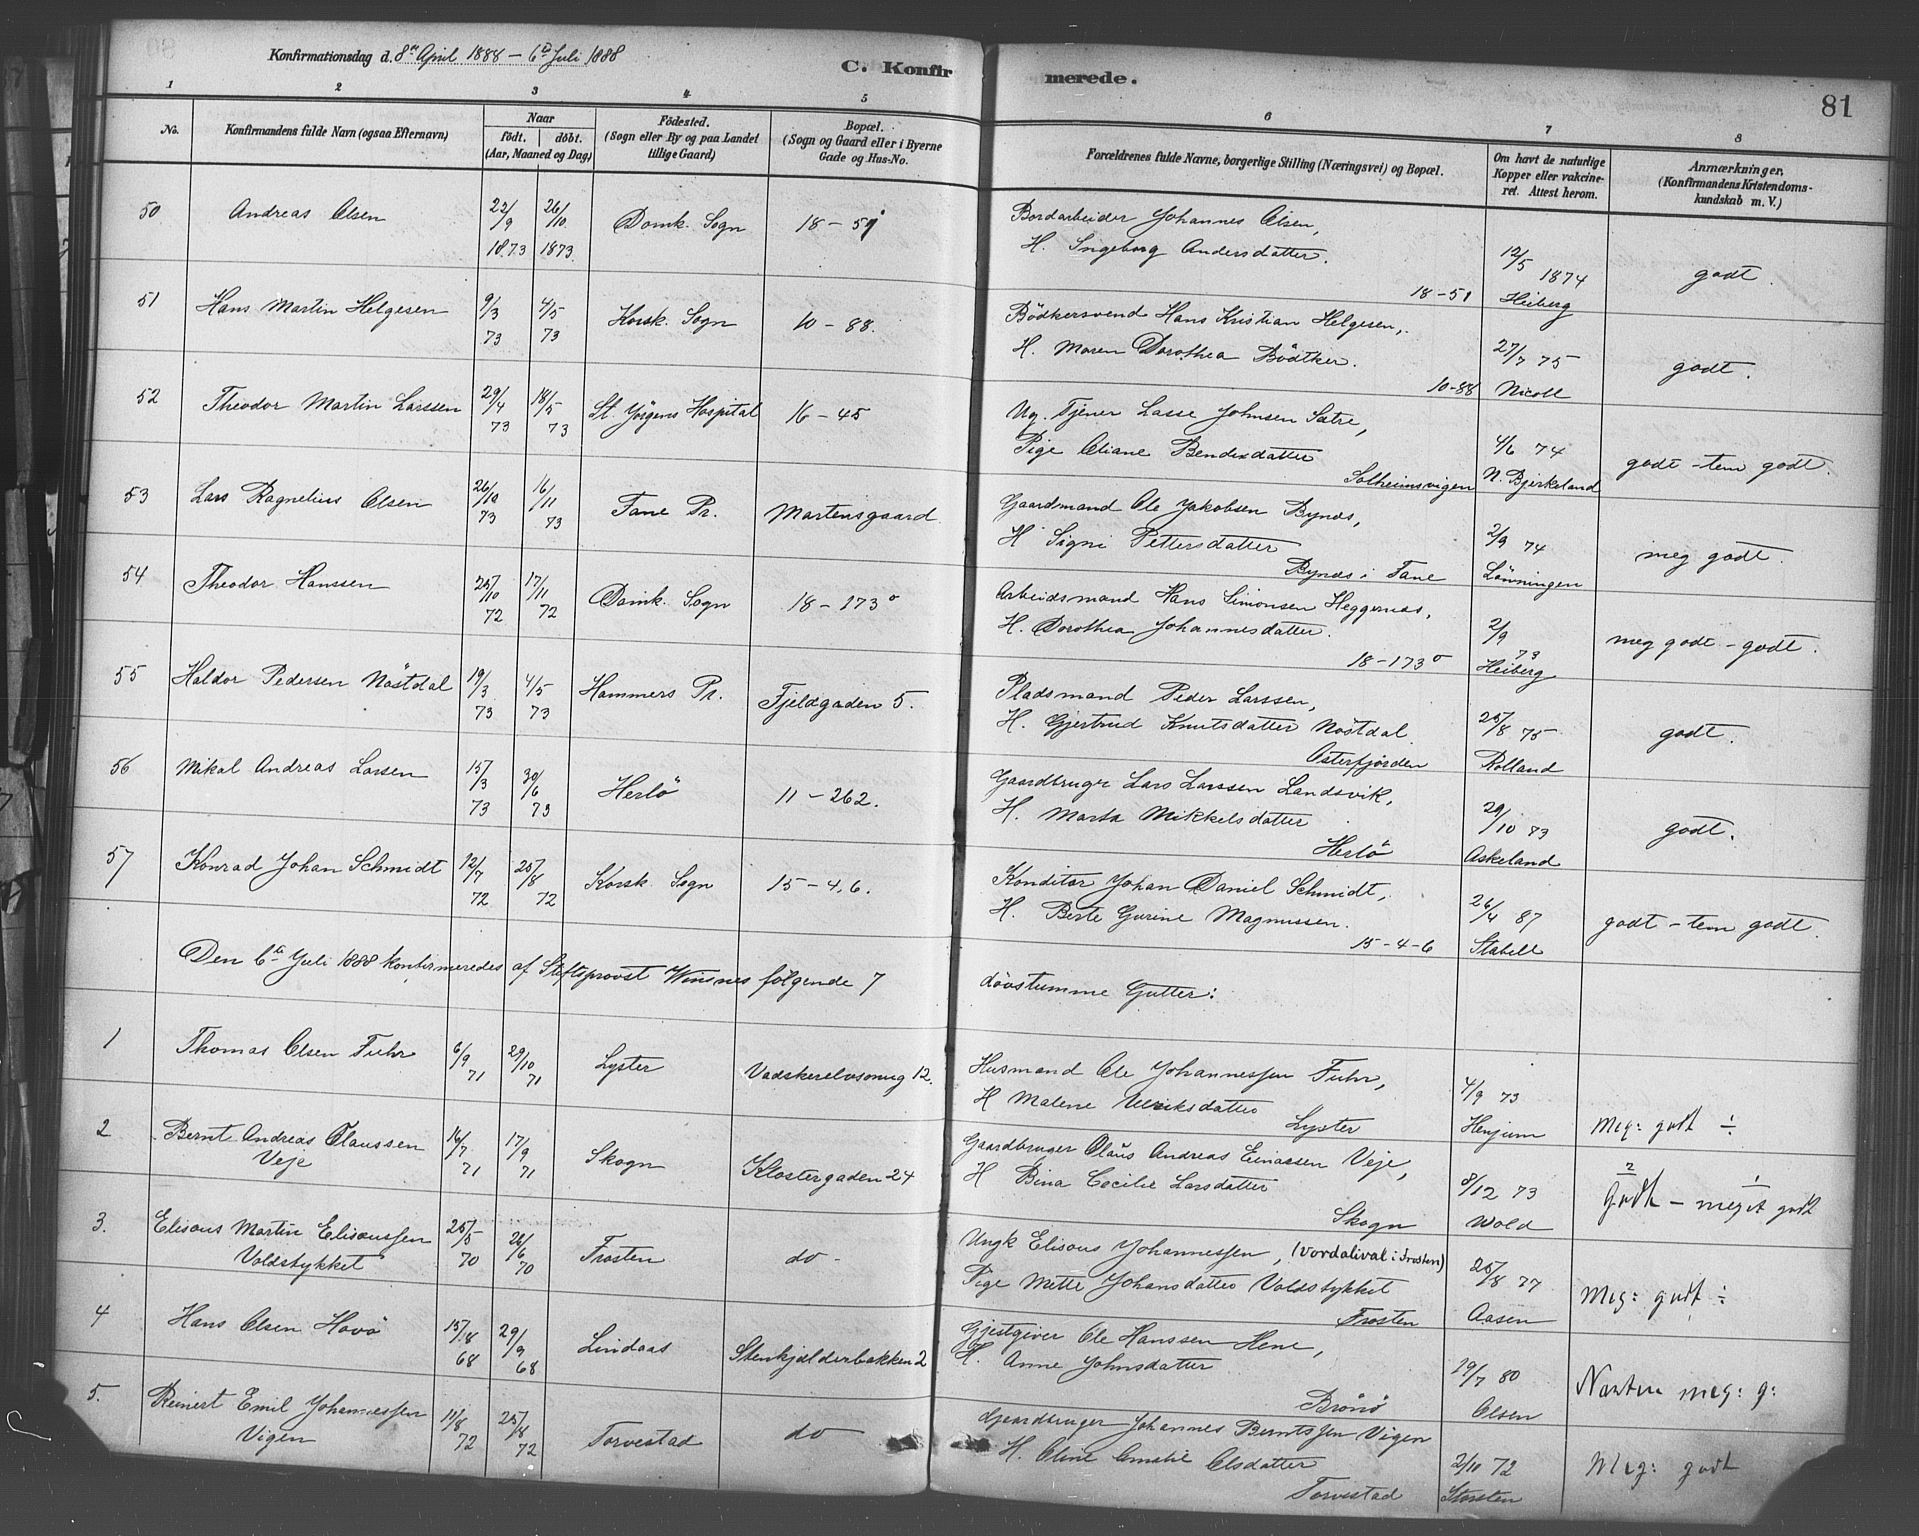 Konfirmationsdag d. 8de April 1888 – 6te Juli 1888
C. Konfirmerede.
81
1 2 3 4 5 6 7 8
No.
Konfirmandens fulde Navn (ogsaa Efternavn)
Naar
födt. döbt.
(Aar, Maaned og Dag)
Födested.
(Sogn eller By og paa Landet
tillige Gaard)
Bopæl.
(Sogn og Gaard eller i Byerne
Gade og Hus-No.
Forældrenes fulde Navne, borgerlige Stilling (Næringsvei) og Bopæl.
Om havt de naturlige
Kopper eller vakcine-
ret. Attest herom.
Anmærkninger,
(Konfirmandens Kristendoms-
kundskab m. V.)
50 Andreas Olsen 22/9 1873 26/10 1873 Domk. Sogn 18 – 51
Bordarbeider Johannes Olsen,
H. Ingeborg Andersdatter.
18–51
12/5 1874
Heiberg
godt.
51 Hans Martin Helgesen 9/3 73 4/5 73 Korsk. Sogn 10 – 88.
Bödkersvend Hans Kristian Helgesen,
H. Maren Dorothea Bödtker.
10–88
27/7 75
Nicoll
godt.
52 Theodor Martin Larssen 29/4 73 18/5 73 St. Jörgens Hospital 16 – 45
Ug. Tjener Lasse Johnsen Sætre,
Pige Oliane Bendixdatter
Solheimsvigen
4/6 74
N. Bjerkeland
godt – tem godt.
53 Lars Ragnelius Olsen 26/10 73 16/11 73 Fane Pr. Martensgaard
Gaardmand Ole Jakobsen Bynds,
H. Signi Pettersdatter
Bynds i Fane
2/9 74
Lönningen
meg godt.
54 Theodor Hanssen 25/10 72 17/11 72 Domk. Sogn 18 – 173 o
Arbeidsmand Hans Simonsen Heggernæs,
H. Dorothea Johannesdatter.
18–173 o
2/9 73
Heiberg
meg godt – godt.
55 Haldor Pedersen Nöstdal 19/3 73 4/5 73 Hammers Pr. Fjeldgaden 5.
Pladsmand Peder Larssen,
H. Gjertrud Knutsdatter Nöstdal
Osterfjorden
25/8 75
Rolland
godt.
56 Mikal Andreas Larsen 15/3 73 30/6 73 Herlö 11 – 262.
Gaardbruger Lars Larssen Landsvik,
H. Marta Mikkelsdatter
Herlö
29/10 73
Askeland
godt.
57 Konrad Johan Schmidt 12/7 72 25/8 72 Korsk. Sogn 15 – 4.6.
Konditor Johan Daniel Schmidt,
H. Berte Gurine Magnussen.
15–4–6
26/4 87
Stabell
godt – tem godt.
Den 6te Juli 1888 konfirmeredes af Stiftsprovst Winsnes følgende 7 døvstumme Gutter:
1 Thomas Olsen Fuhr 6/9 71 29/10 71 Lyster Vadskerelvsmug 12.
Husmand Ole Johannessen Fuhr,
H Malene Ulriksdatter
Lyster
4/9 73
Henjum
Meg: godt ÷
2 Bernt Andreas Olaussen
Veje 16/7 71 17/9 71 Skogn Klostergaden 24
Gaardbruger Olaus Andreas Einarsen Veje,
H Bina Cecilie Larsdatter
Skogn
8/12 73
Wold
Godt – meget godt
3. Elisæus Martin Elisæussen
Voldstykket 25/5 70 26/6 70 Frosten do –
Ungk Elisæus Johannessen, (Vordalival i Frosten)
Pige Mette Johansdatter Voldstykket
Frosten
25/8 77
Aasen
Meg: godt ÷
4 Hans Olsen Havö 15/8 68 29/9 68 Lindaas Stenkjælderbakken 2
Gjestgiver Ole Hanssen Hene,
H. Anne Johnsdatter
Brönö
19/7 80
Olsen
Næsten meg: g:
5. Reinert Emil Johannessen
Vigen 11/8 72 25/8 72 Torvestad do
Gaardbruger Johannes Berntsen Vigen
H. Oline Amalie Olsdatter
Torvestad
2/10 72
Storsten
Meg: godt